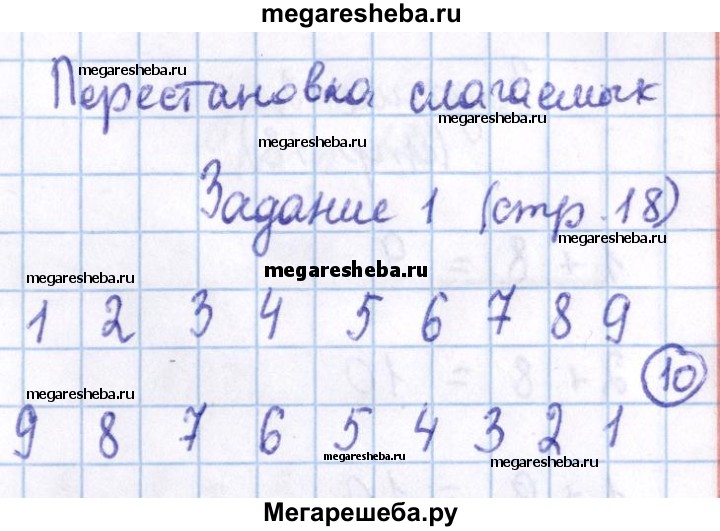 megaresheba.ru
megaresheba.ru
Перестановка слагаемых
megaresheba.ru
megaresheba.ru
Задание 1 (стр. 18)
megaresheba.ru
megaresheba.ru
megaresheba.ru
1 2 3 4 5 6 7 8 9
10
megaresheba.ru
9 8 7 6 5 4 3 2 1
megaresheba.ru
megaresheba.ru
Мегарешеба.ру